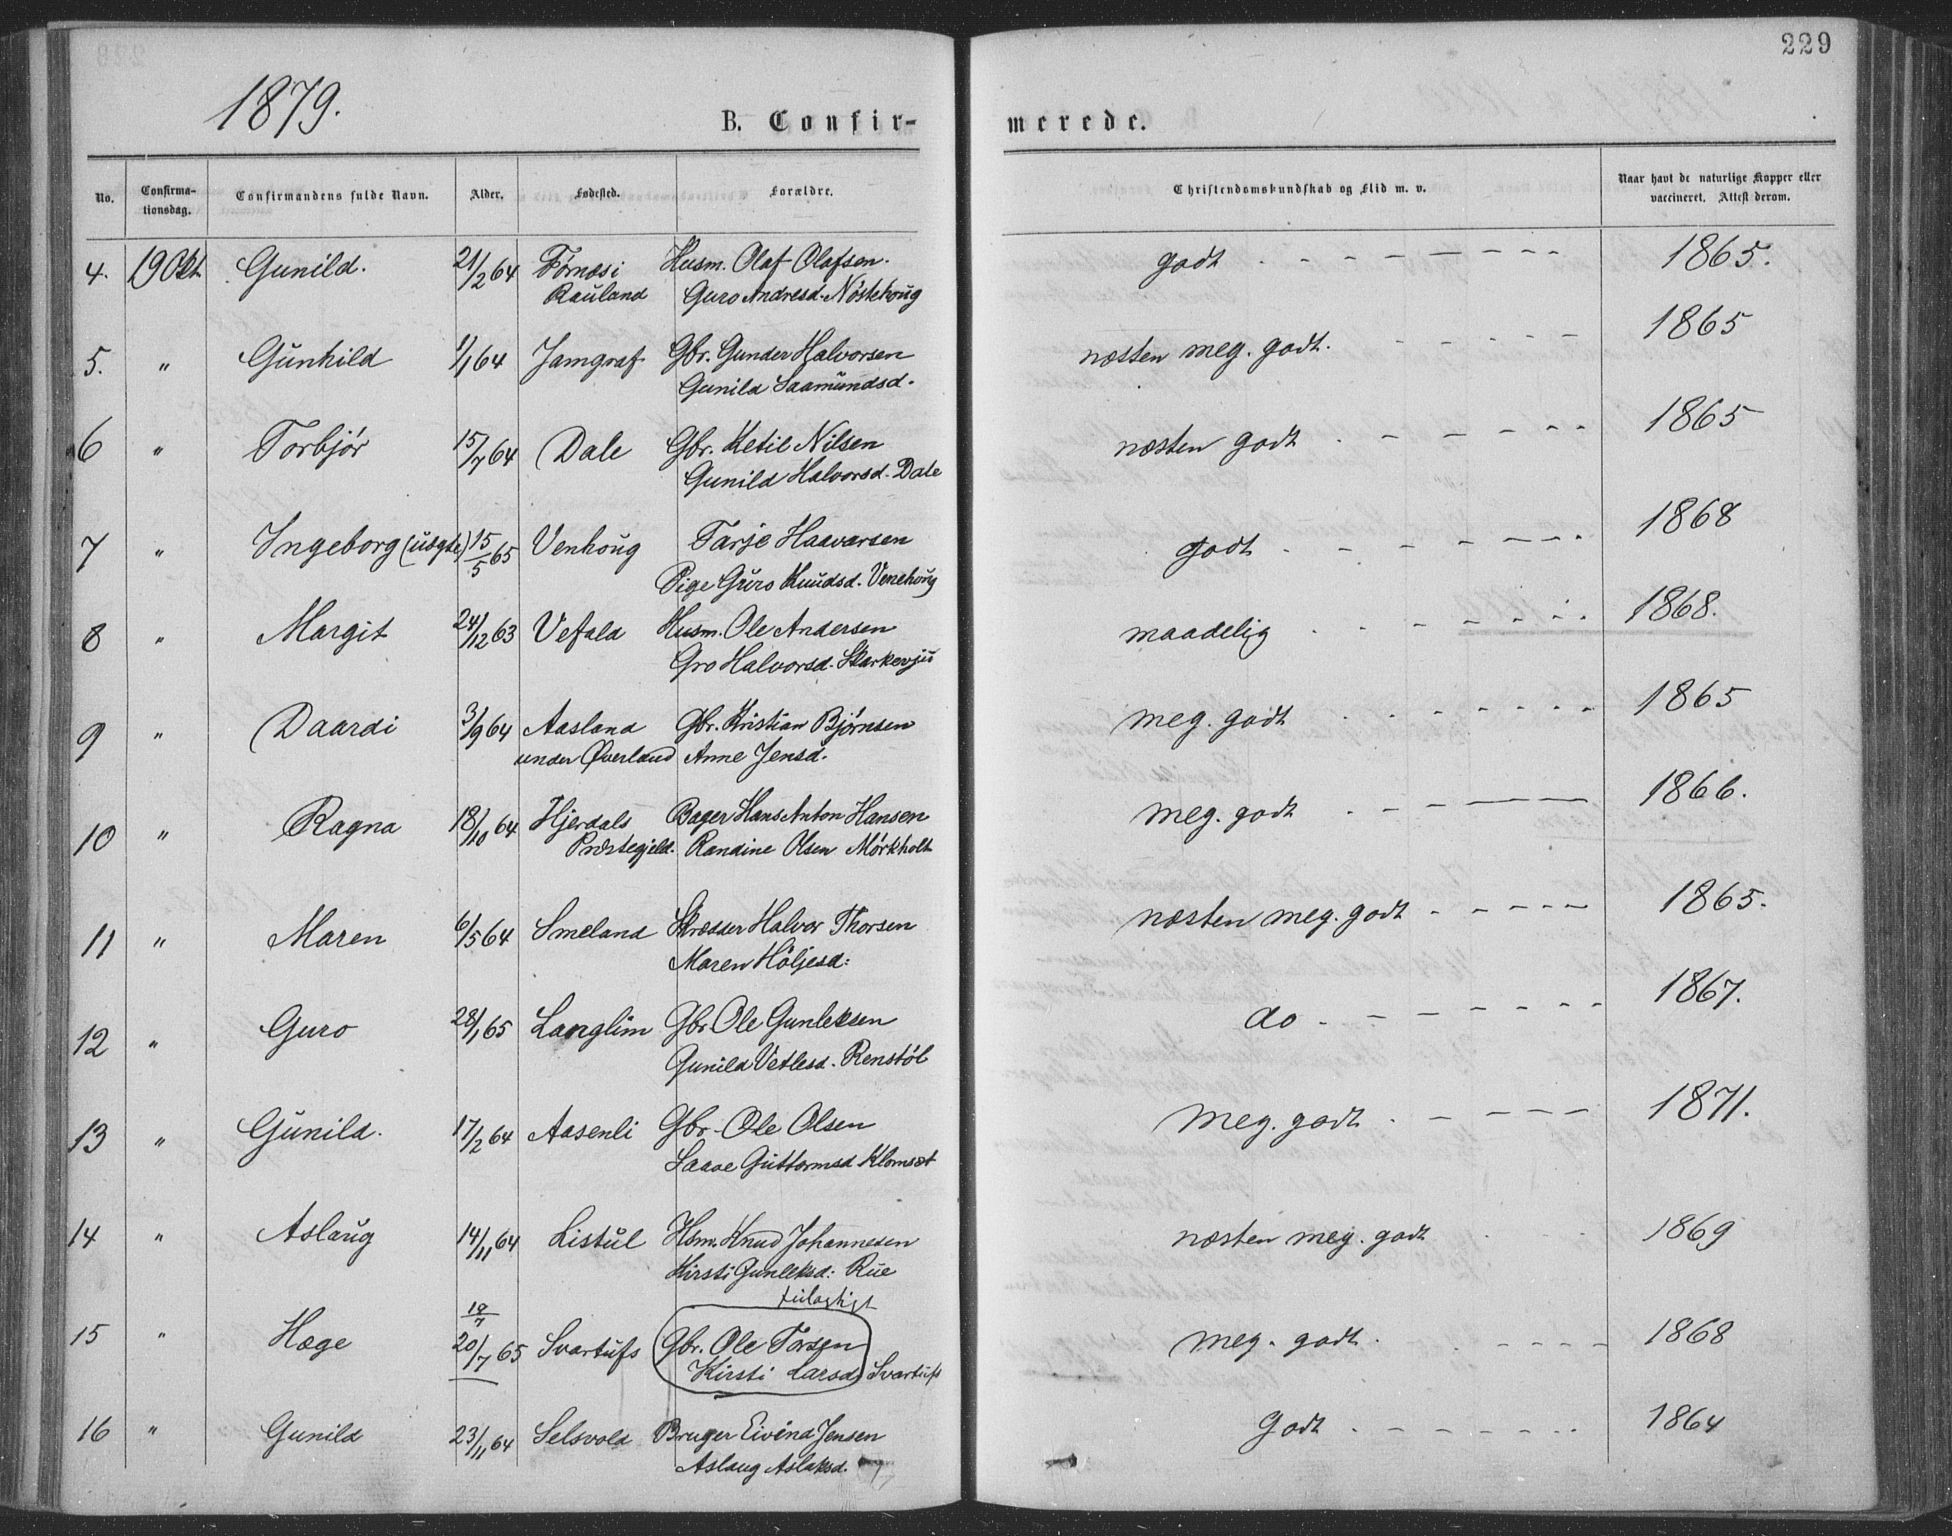 229
1879.
B. Confir-
merede.
No.
Confirma-
tionsdag.
Confirmandens fulde Navn.
Alder.
Fødested.
Forældre.
Christendomskundskab og Flid m. v.
Naar havt de naturlige Kopper eller
vaccineret. Attest derom.
4. 19 Okt. Gunild. 21/2 64 Førnæsi Husm. Olaf Olafsen. godt 1865.
Rauland Guro Andresd. Nöstehoug
5. " Gunhild 1/1 64 Jamgraf Gbr. Gunder Halvorsen næsten meg. godt. 1865
Gunild Saamundsd.
6 " Torbjör 15/7 64 Dale Gbr. Ketil Nilsen næsten godt 1865
Gunild Halvorsd. Dale
7 " Ingeborg (uægte) 15/5 65 Venhoug Tarje Haavarsen godt 1868
Pige Guro Knudsd. Venehoug
8 " Margit 24/12 63 Vefald Husm. Ole Andersen maadelig 1868.
Gro Halvorsd. Skarkevju
9 " Daardi 3/9 64 Aasland Gbr. Kristian Bjørnsen meg. godt 1865
under Øverland Anne Jensd.
10 " Ragna 18/10 64 Hjerdals Bager Hans Anton Hansen meg. godt 1866.
Præstegjeld. Randine Olsen Mørkholt
11 " Maren 6/5 64 Smeland Skrædder Halvor Thorsen næsten meg. godt 1865.
Maren Höljesd:
12 " Guro 28/1 65 Langlim Gbr Ole Gunleksen do 1867.
Gunild Vetlesd. Renstöl
13 " Gunild. 17/2 64 Aasenli Gbr. Ole Olsen meg. godt 1871.
Saave Guttormsd Klomset
14 " Aslaug 14/11 64 Listul Hsm. Knud Johannesen næsten meg. godt 1869
Kirsti Gunleksd: Rue
18/7
15 " Hæge 20/7 65 Svartufs Gbr. Ole Torsen meg. godt. 1868
Kirsti Larsd. Svartufs
16 " Gunild 23/11 64 Selsvold Bruger Eivind Jensen Godt 1864
Aslaug Aslaksd.